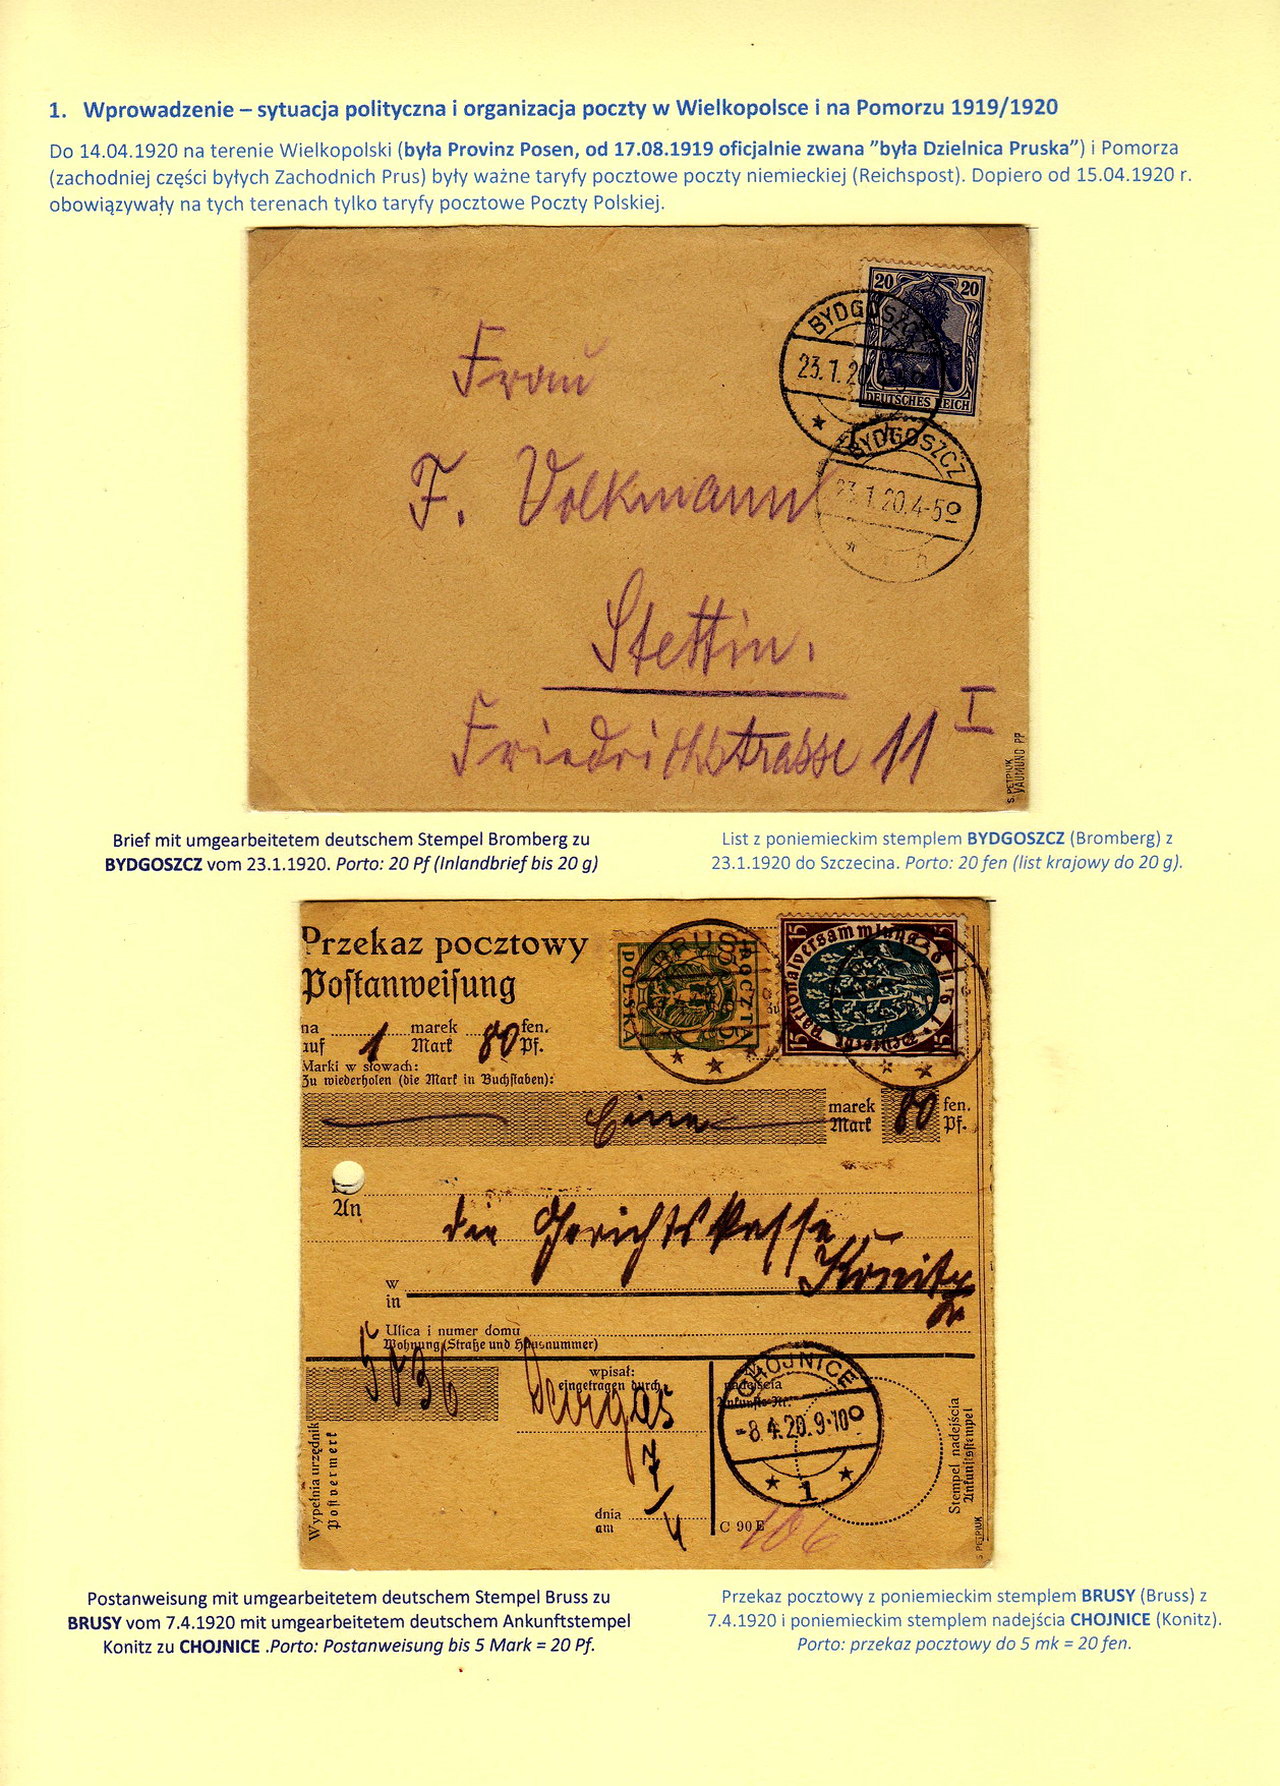 1. Wprowadzenie – sytuacja polityczna i organizacja poczty w Wielkopolsce i na Pomorzu 1919/1920
Do 14.04.1920 na terenie Wielkopolski (była Provinz Posen, od 17.08.1919 oficjalnie zwana ”była Dzielnica Pruska”) i Pomorza
(zachodniej części byłych Zachodnich Prus) były ważne taryfy pocztowe poczty niemieckiej (Reichspost). Dopiero od 15.04.1920 r.
obowiązywały na tych terenach tylko taryfy pocztowe Poczty Polskiej.
20 20
DEUTSCHES REICH
BYDGOSZCZ
23.1.20
BYDGOSZCZ
23.1.20.4-5º
Frau
F. Volkmann
Stettin.
Friedrichstrasse 11 I
S. PETRIUK
VÄUMUND PP
Brief mit umgearbeitetem deutschem Stempel Bromberg zu
BYDGOSZCZ vom 23.1.1920. Porto: 20 Pf (Inlandbrief bis 20 g)
List z poniemieckim stemplem BYDGOSZCZ (Bromberg) z
23.1.1920 do Szczecina. Porto: 20 fen (list krajowy do 20 g).
Przekaz pocztowy
Postanweisung
na marek fen.
auf 1 Mark 80 Pf.
Marki w słowach:
Zu wiederholen (die Mark in Buchstaben):
POCZTA
POLSKA
BRUSY
15 15
Nationalversammlung 1919
Eine marek 80 fen.
Mark Pf.
An
die Gerichtskasse
Konitz
w
in
Ulica i numer domu
Wohnung (Straße und Hausnummer)
5036
wpisał:
eingetragen durch
nadejścia
Ankunfts-Nr.
CHOJNICE
-8.4.20.9-10º
1
Wypełnia urzędnik
Postvermerk
Stempel nadejścia
Ankunftsstempel
7/4
dnia
am
C 90 E
106
S. PETRIUK
Postanweisung mit umgearbeitetem deutschem Stempel Bruss zu
BRUSY vom 7.4.1920 mit umgearbeitetem deutschem Ankunftstempel
Konitz zu CHOJNICE .Porto: Postanweisung bis 5 Mark = 20 Pf.
Przekaz pocztowy z poniemieckim stemplem BRUSY (Bruss) z
7.4.1920 i poniemieckim stemplem nadejścia CHOJNICE (Konitz).
Porto: przekaz pocztowy do 5 mk = 20 fen.